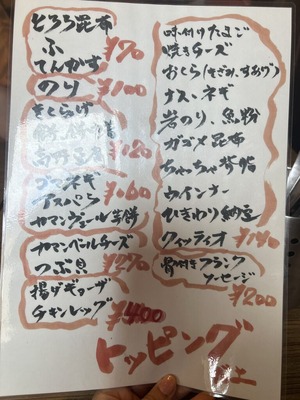 とろろ昆布
ふ
てんかす ¥70
のり ¥100
きくらげ
¥120
ゴマネギ
アスパラ ¥160
カマンベールチーズ
つぶ貝 ¥270
揚げギョーザ
チキンレッグ ¥400
味付たまご
焼きチーズ
おくら(きざみ、すあげ)
ナス・ネギ
岩のり、魚粉
ガゴメ昆布
ちゃちゃ
ウインナー
ひきわり納豆
¥140
骨付きフランク
ソーセージ
¥200
トッピング